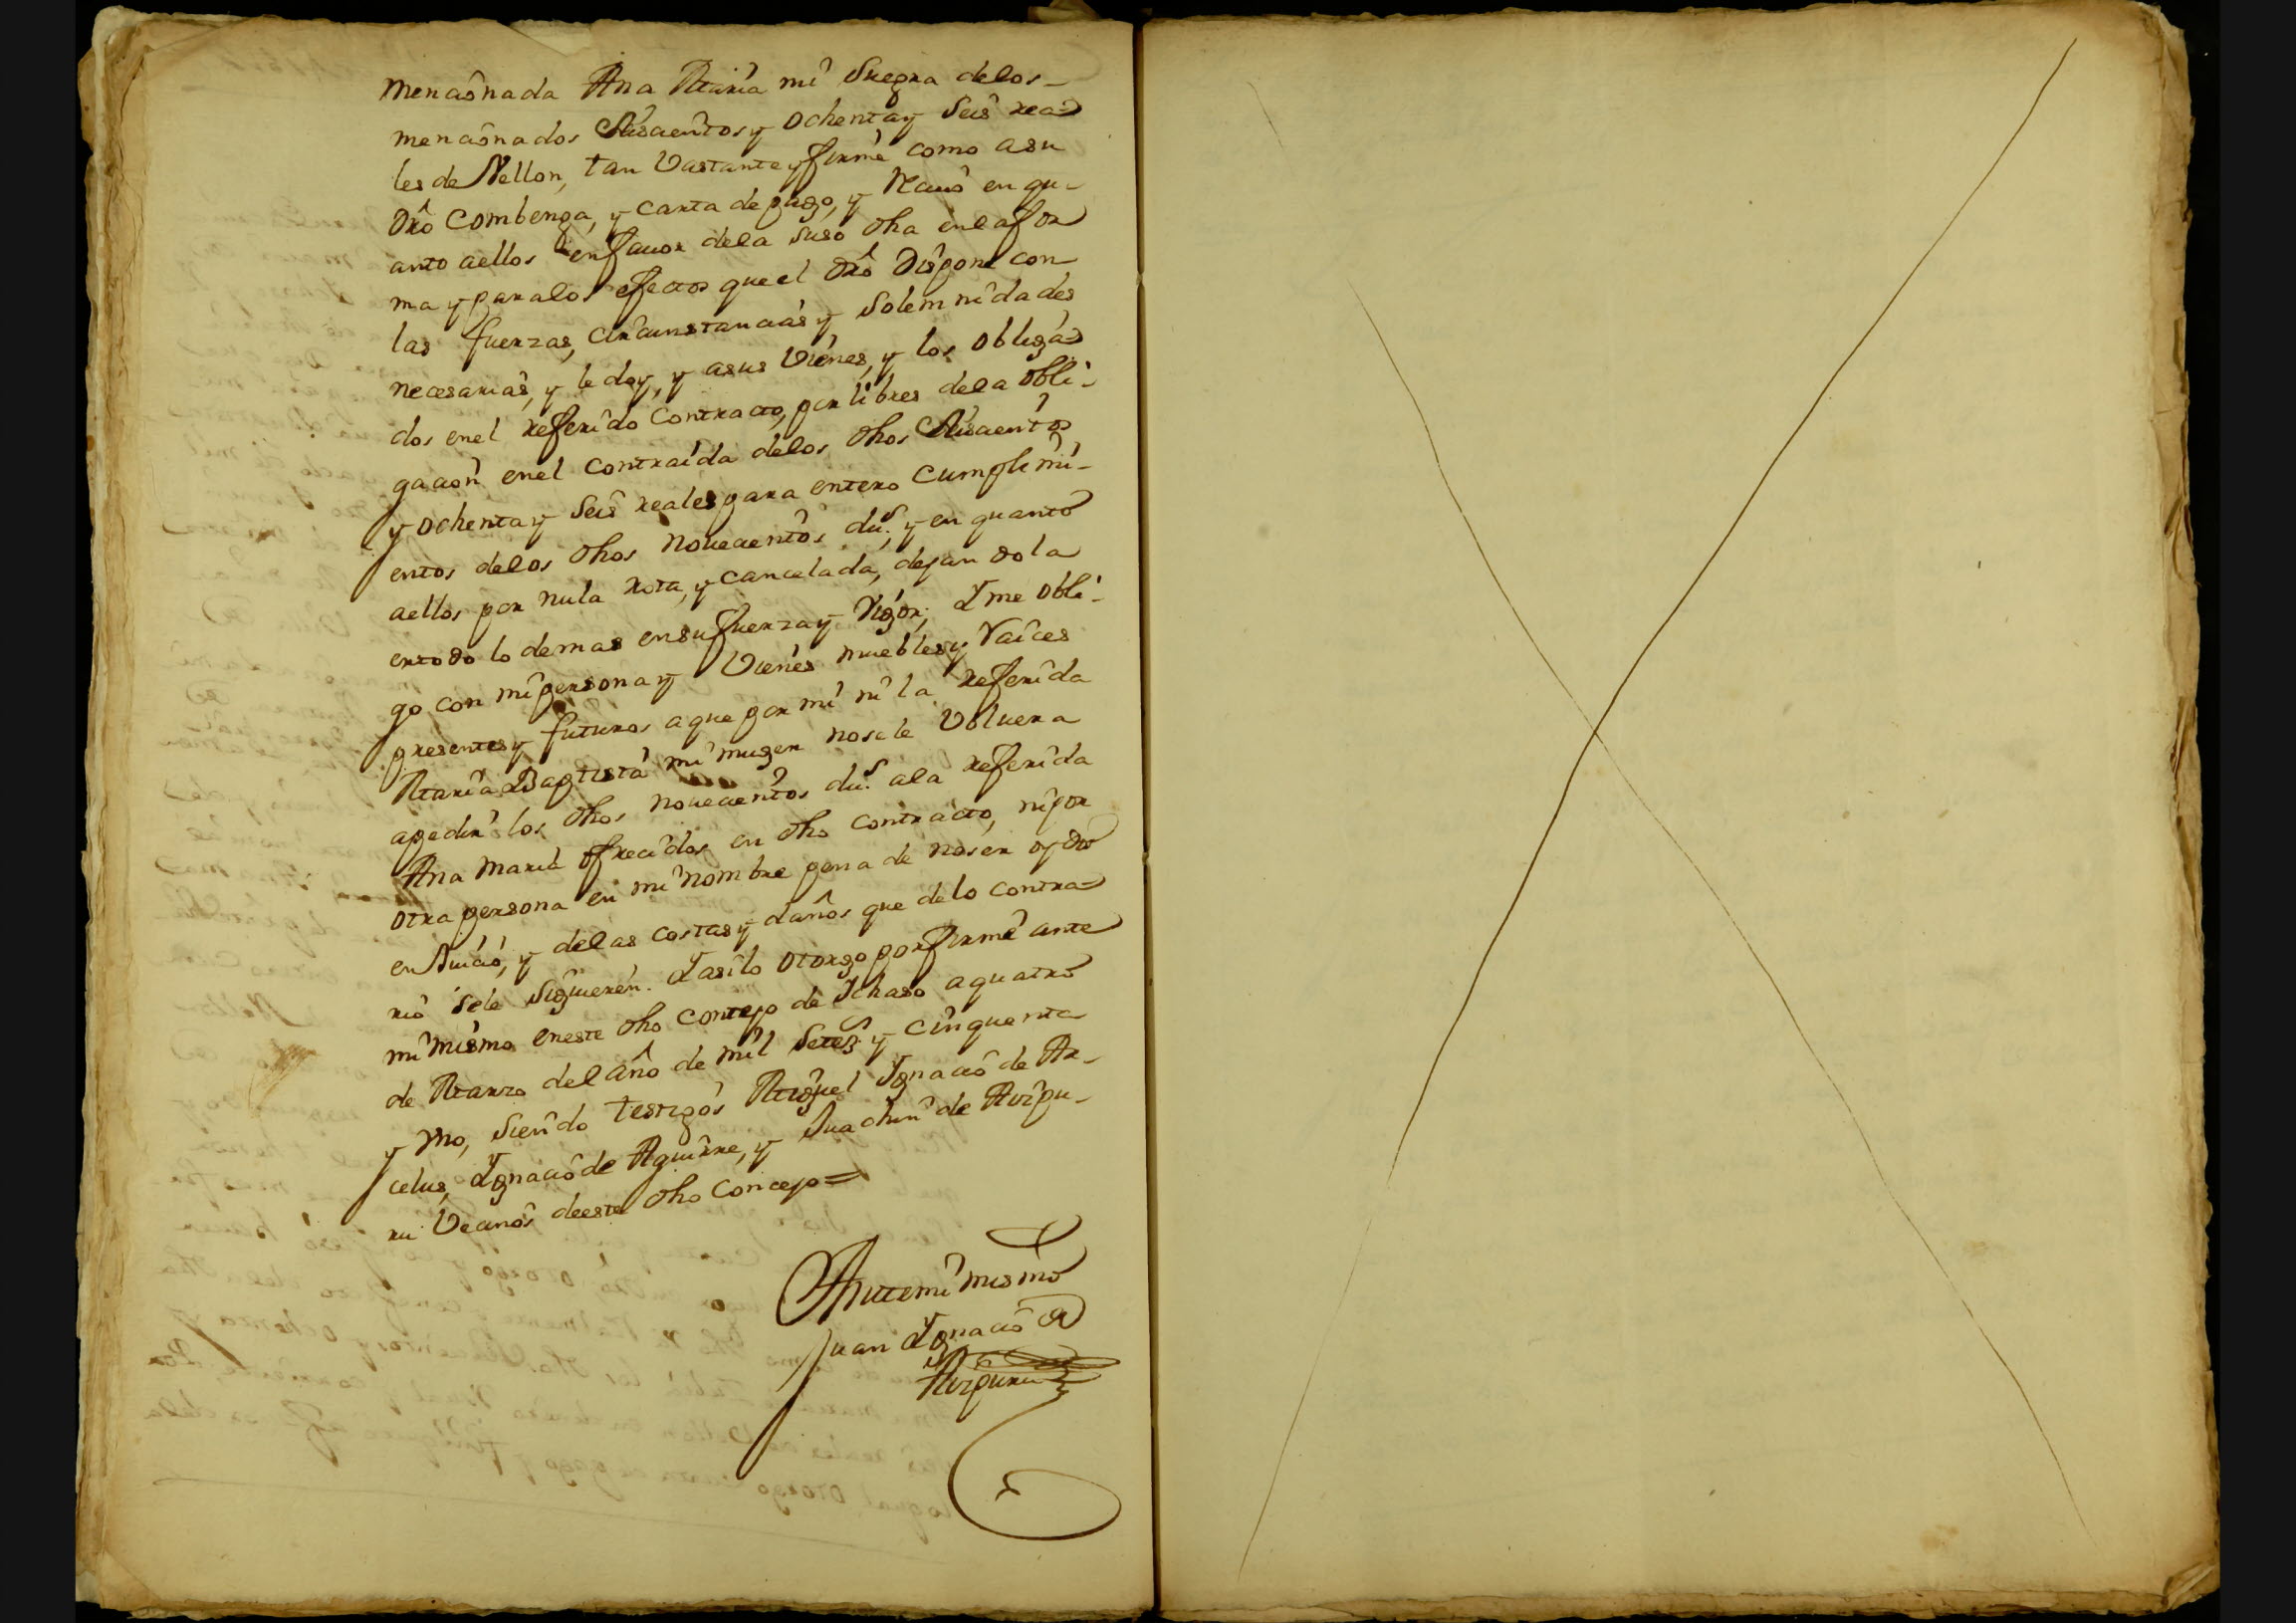 mencionada Ana Maria mi Suegra delos-
mencionados Seiscientos y ochenta y Seis rea=
les de Vellon, tan Vastante y firme como asu
dro combenga, y carta de pago, y Reciuo en qu-
anto aellos en fauor dela suso dha enla for
ma y paralos efectos que el dro dispone con
las fuerzas, circunstancias y Solemnidades
necesarias, y le doy, y asus Vienes, y los obliga=
dos enel referido Contracto, por libres dela obli-
gacion enel contraida delos dhos Seiscientos
y ochenta y Seis reales para entero cumplimi-
entos delos dhos nouecientos du.s y en quanto
aellos por nula rota, y cancelada, dejandola
entodo lo demas ensu fuerza y Vigor; Y me obli-
go con mi persona y Vienes muebles y Raices
presentes y futuros a que por mi ni la referida
Maria Baptista mi muger nosele Voluera
apedir los dhos nouecientos du.s ala referida
Ana Maria ofrecidos en dho contracto, ni por
otra persona en mi nombre pena de noser oydo
en Juicio, y delas costas y daños que delo contra=
rio sele Siguieren. Y asilo otorgo por firme ante
mi mismo eneste dho Concejo de Ichaso a quatro
de Marzo del año de mil Setez.s y cinquenta
y vno, Siendo testigos Miguel Ignacio de Ar-
celus, Ygnacio de Aguirre, y Juachin de Aizpu-
ru Vecinos deeste dho Concejo=
Antemi mismo
Juan Ygnacio de
Aizpuru